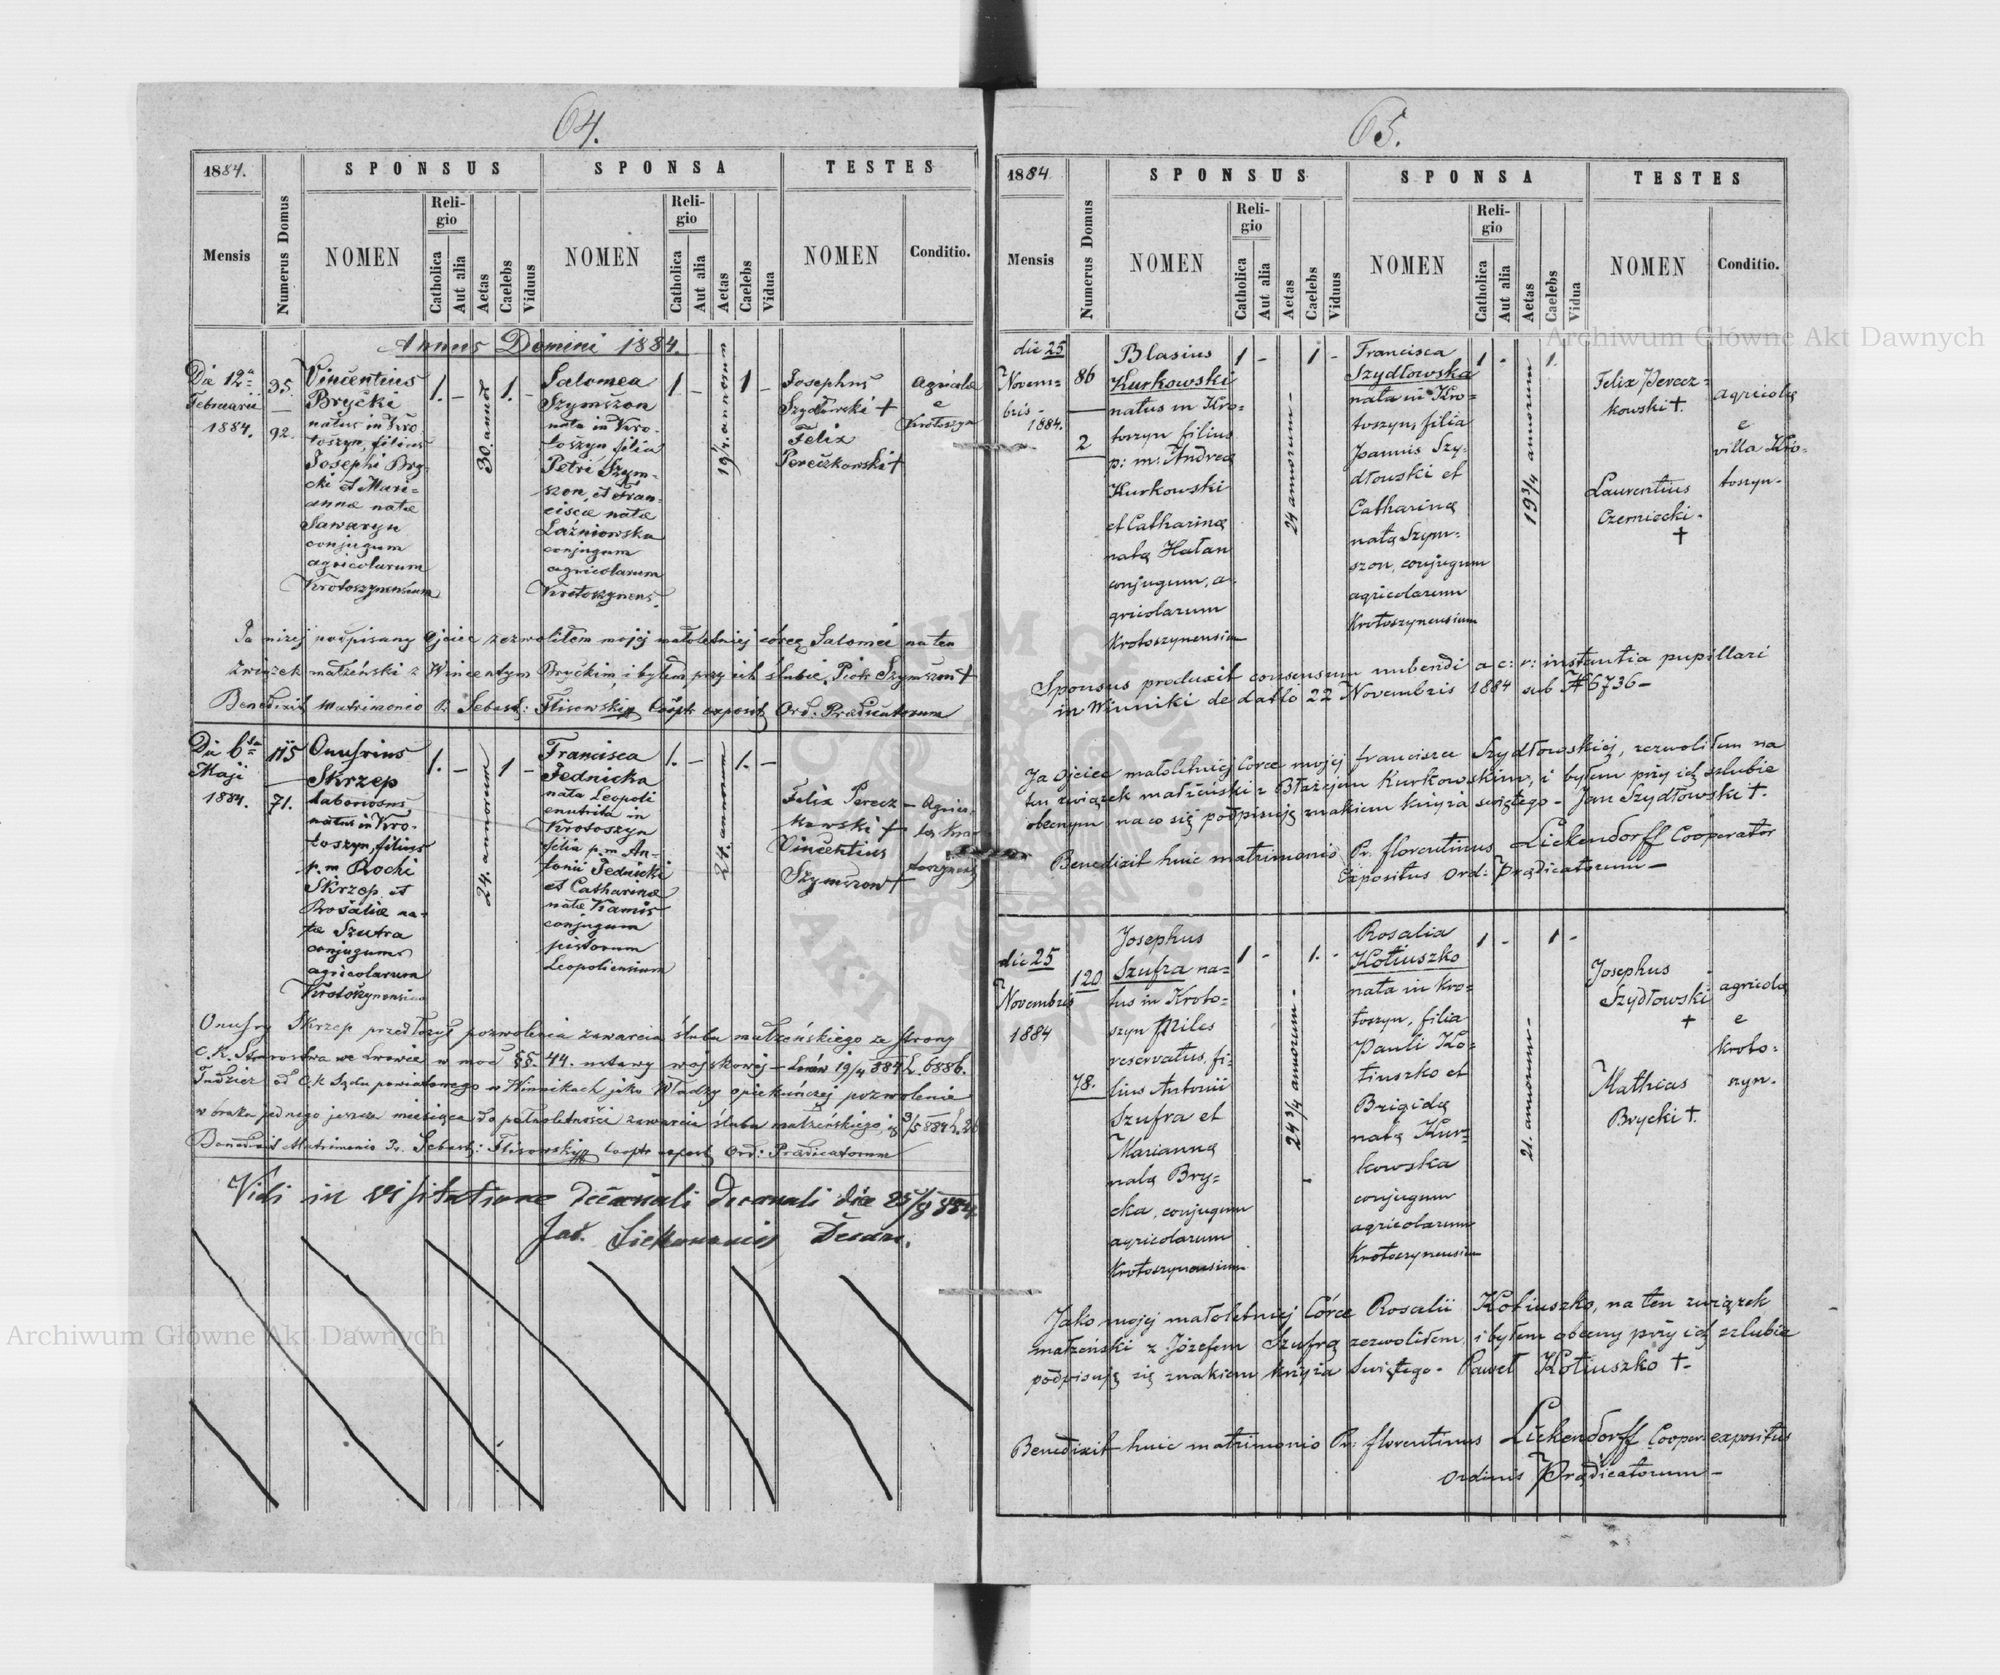 64.
1884.
SPONSUS
SPONSA
TESTES
Mensis
Numerus Domus
NOMEN
Religio
Catholica
Aut alia
Aetas
Caelebs
Viduus
NOMEN
Religio
Catholica
Aut alia
Aetas
Caelebs
Vidua
NOMEN
Conditio.
Annus Domini 1884.
Die 12a
Februarii
1884.
35.
92.
Vincentius
Brycki
natus in Kro-
toszyn, filius
Josephi Bry-
cki et Mari-
annæ natæ
Sawaryn
conjugum
agricolarum
Krotoszynensium
1.
–
30. annor
1.
–
Salomea
Szymszon
nata in Kro-
toszyn, filia
Petri Szym-
szon, et Fran-
ciscæ natæ
Łaźniowska
conjugum
agricolarum
Krotoszynens.
1
–
annorum
1
–
Josephus
Szydłowski +
Felix
Pereczkowski +
agricolæ
e
Krotoszyn
Ja niżej podpisany Ojciec zezwoliłem mojej małoletniej córce Salomei na ten
związek małżeński z Wincentym Bryckim, i byłem przy ich ślubie. Piotr Szymszon +
Benedixit Matrimonio Pr. Sebast: Flisowski Coopr exposit Ord. Prædicatorum
Die 6ta
Maji
1884.
115
71.
Onufrius
Skrzep
laboriosus
natus in Kro-
toszyn, filius
p. m Rochi
Skrzep, et
Rosaliæ na-
tæ Szutra
conjugum
agricolarum
Krotoszynensium
1.
–
24. annorum
1
–
Francisca
Jednicka
nata Leopoli
enutrita in
Krotoszyn
filia p. m An-
tonii Jednicki
et Catharinæ
natæ Kamis
conjugum
pistorum
Leopoliensium
1.
–
24. annorum
1.
–
Felix Perecz-
kowski +
Vincentius
Szymszon +
Agrico-
læ Kro-
toszynens
Onufry Skrzep przedłożył pozwolenia zawarcia ślubu małżeńskiego ze strony
C. K. Starostwa we Lwowie w moc §§. 44. ustawy wojskowej – Lwów 19/4 884 L. 6886.
Tudzież od C. k Sądu powiatowego w Winnikach jako Władzy opiekuńczej pozwolenie
w braku jednego jeszcze miesiąca do pełnoletności zawarcia ślubu małżeńskiego,
Benedixit Matrimonio Pr. Sebast: Flisowski Coopr expost Ord: Prædicatorum
Vidi in visitatione Decanali
Decan.
65.
1884
SPONSUS
SPONSA
TESTES
Mensis
Numerus Domus
NOMEN
Religio
Catholica
Aut alia
Aetas
Caelebs
Viduus
NOMEN
Religio
Catholica
Aut alia
Aetas
Caelebs
Vidua
NOMEN
Conditio.
die 25
Novem-
bris -
1884.
86
2
Blasius
Kurkowski
natus in Kro-
toszyn filius
p: m: Andreæ
Kurkowski
et Catharinæ
natæ Hałan
conjugum, a-
gricolarum
Krotoszynensium
1
-
24 annorum -
1
-
Francisca
Szydłowska
nata in Kro-
toszyn, filia
Joannis Szy-
dłowski et
Catharinæ
natæ Szym-
szon, conjugum
agricolarum
Krotoszynensium
1
-
19 3/4 annorum
1.
Felix Perecz-
kowski +.
Laurentius
Czerniecki.
+
agricolæ
e
villa Kro-
toszyn.
Sponsus produxit consensum nubendi a c: r: instantia pupillari
in Winniki de datto 22 Novembris 1884 sub № 6736 –
Ja Ojciec małoletniej Córce mojej Francisce Szydłowskiej, zezwoliłem na
ten związek małżeński z Błażejem Kurkowskim, i byłem przy ich szlubie
obecnym na co się podpisuję znakiem krzyża świętego - Jan Szydłowski +.
Benedixit huic matrimonio Pr. Florentinus Liekendorff Cooperator
Expositus Ord: Prædicatorum –
die 25
Novembris
1884
120
78.
Josephus
Szufra na-
tus in Kroto-
szyn Miles
reservatus, fi-
lius Antonii
Szufra et
Mariannæ
natæ Bry-
cka, conjugum
agricolarum
Krotoszynensium.
1
-
24 3/4 annorum -
1.
-
Rosalia
Kotiuszko
nata in Kro-
toszyn, filia
Pauli Ko-
tiuszko et
Brigidæ
natæ Kur-
kowska
conjugum
agricolarum
Krotoszynensium
1
-
21. annorum -
1
-
Josephus
Szydłowski
+
Mathias
Brycki +.
agricolæ
e
Kroto-
szyn.
Jako mojej małoletniej Córce Rosalii Kotiuszko, na ten związek
małżeński z Józefem Szufrą zezwoliłem, i byłem obecny przy ich szlubie
podpisuję się znakiem krzyża Świętego. Paweł Kotiuszko +-
Benedixit huic matrimonio Pr: Florentinus Liekendorff Cooper: expositus
Ordinis Prædicatorum –
Archiwum Główne Akt Dawnych
Archiwum Główne Akt Dawnych